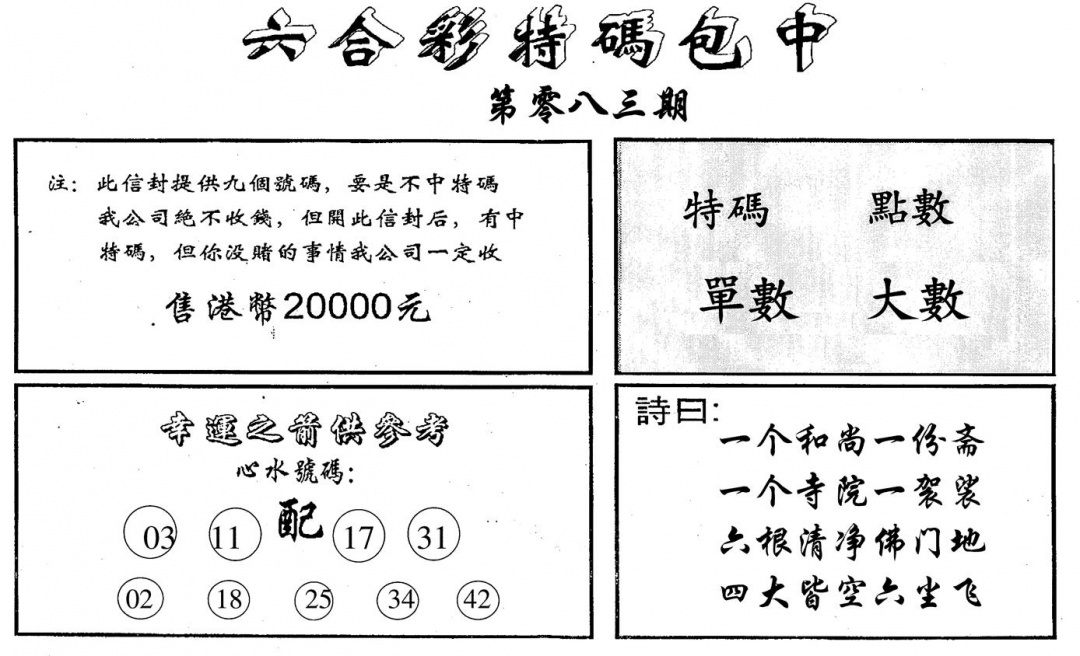 六合彩特碼包中
第零八三期
注：此信封提供九個號碼，要是不中特碼
我公司絕不收錢，但開此信封后，有中
特碼，但你没賭的事情我公司一定收
售港幣20000元
特碼 點數
單數 大數
幸運之箭供參考
心水號碼：
03 11 配 17 31
02 18 25 34 42
詩曰：
一个和尚一份斋
一个寺院一袈裟
六根清净佛门地
四大皆空六尘飞